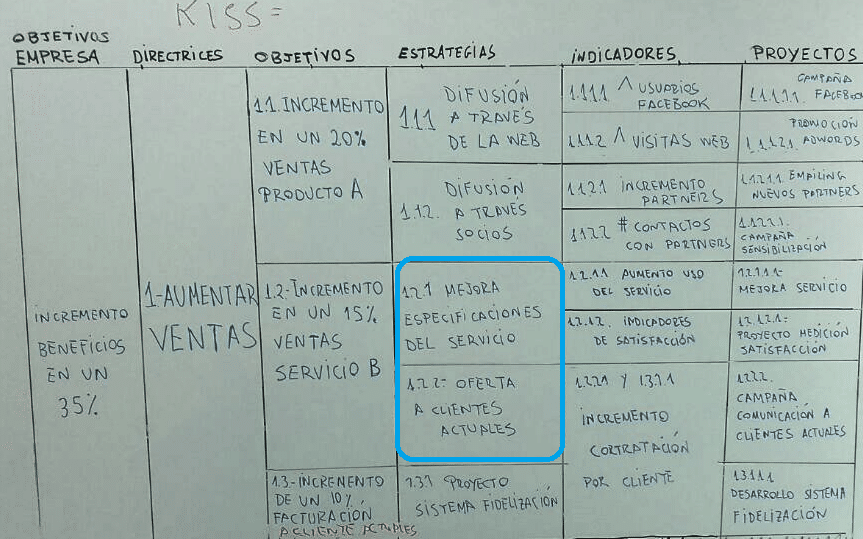 KISS=
OBJETIVOS
EMPRESA
DIRECTRICES
OBJETIVOS
ESTRATEGIAS
INDICADORES
PROYECTOS
INCREMENTO
BENEFICIOS
EN UN
35%
1-AUMENTAR
VENTAS
1.1. INCREMENTO
EN UN 20%
VENTAS
PRODUCTO A
1.1.1 DIFUSIÓN
A TRAVÉS
DE LA WEB
1.1.1.1 ^ USUARIOS
FACEBOOK
CAMPAÑA
1.1.1.1.1. FACEBOOK
1.1.1.2 ^ VISITAS WEB
PROMOCIÓN
1.1.1.2.1 ADWORDS
DIFUSIÓN
1.1.2. A TRAVÉS
SOCIOS
1.1.2.1 INCREMENTO
PARTNERS
1.1.2.1.1 EMAILING
NUEVOS PARTNERS
1.1.2.2 # CONTACTOS
CON PARTNERS
1.1.2.2.1.
CAMPAÑA
SENSIBILIZACIÓN
1.2.-INCREMENTO
EN UN 15%
VENTAS
SERVICIO B
1.2.1 MEJORA
ESPECIFICACIONES
DEL SERVICIO
1.2.1.1 AUMENTO USO
DEL SERVICIO
1.2.1.1.1-
MEJORA SERVICIO
1.2.1.2. INDICADORES
DE SATISFACCIÓN
1.2.1.2.1-
PROYECTO MEDICIÓN
SATISFACCIÓN
1.2.2- OFERTA
A CLIENTES
ACTUALES
1.2.2.1 Y 1.3.1.1
INCREMENTO
CONTRATACIÓN
POR CLIENTE
1.2.2.2.
CAMPAÑA
COMUNICACIÓN A
CLIENTES ACTUALES
1.3.-INCREMENTO
DE UN 10%
FACTURACIÓN
A CLIENTE ACTUALES
1.3.1 PROYECTO
SISTEMA FIDELIZACIÓN
1.3.1.1.1
DESARROLLO SISTEMA
FIDELIZACIÓN